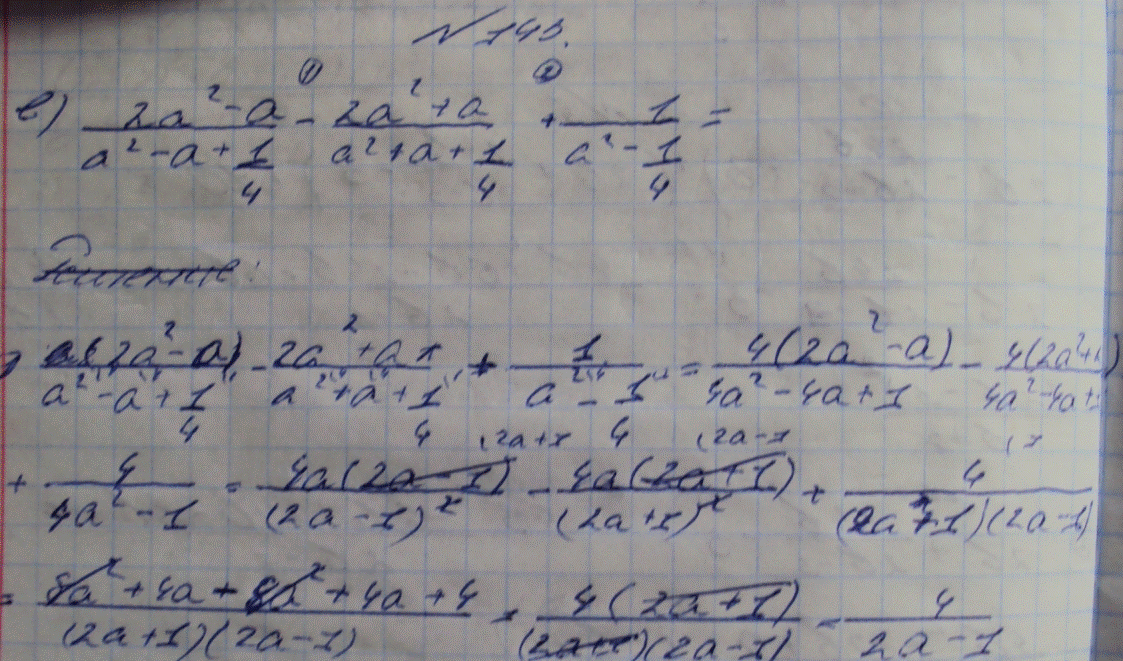 N 145.
① ②
в) (2a² - a)/(a² - a + 1/4) - (2a² + a)/(a² + a + 1/4) + 1/(a² - 1/4) =
(2a² - a)/(a² - a + 1/4) - (2a² + a)/(a² + a + 1/4) + 1/(a² - 1/4) = 4(2a² - a)/(4a² - 4a + 1) - 4(2a² +
(2a+1 (2a-1
+ 4/(4a² - 1) = 4a(2a - 1)/(2a - 1)² - 4a(2a + 1)/(2a + 1)² + 4/((2a + 1)(2a - 1))
= (8a² + 4a - 8a² + 4a + 4)/((2a + 1)(2a - 1)) = 4(2a + 1)/((2a + 1)(2a - 1)) = 4/(2a - 1)